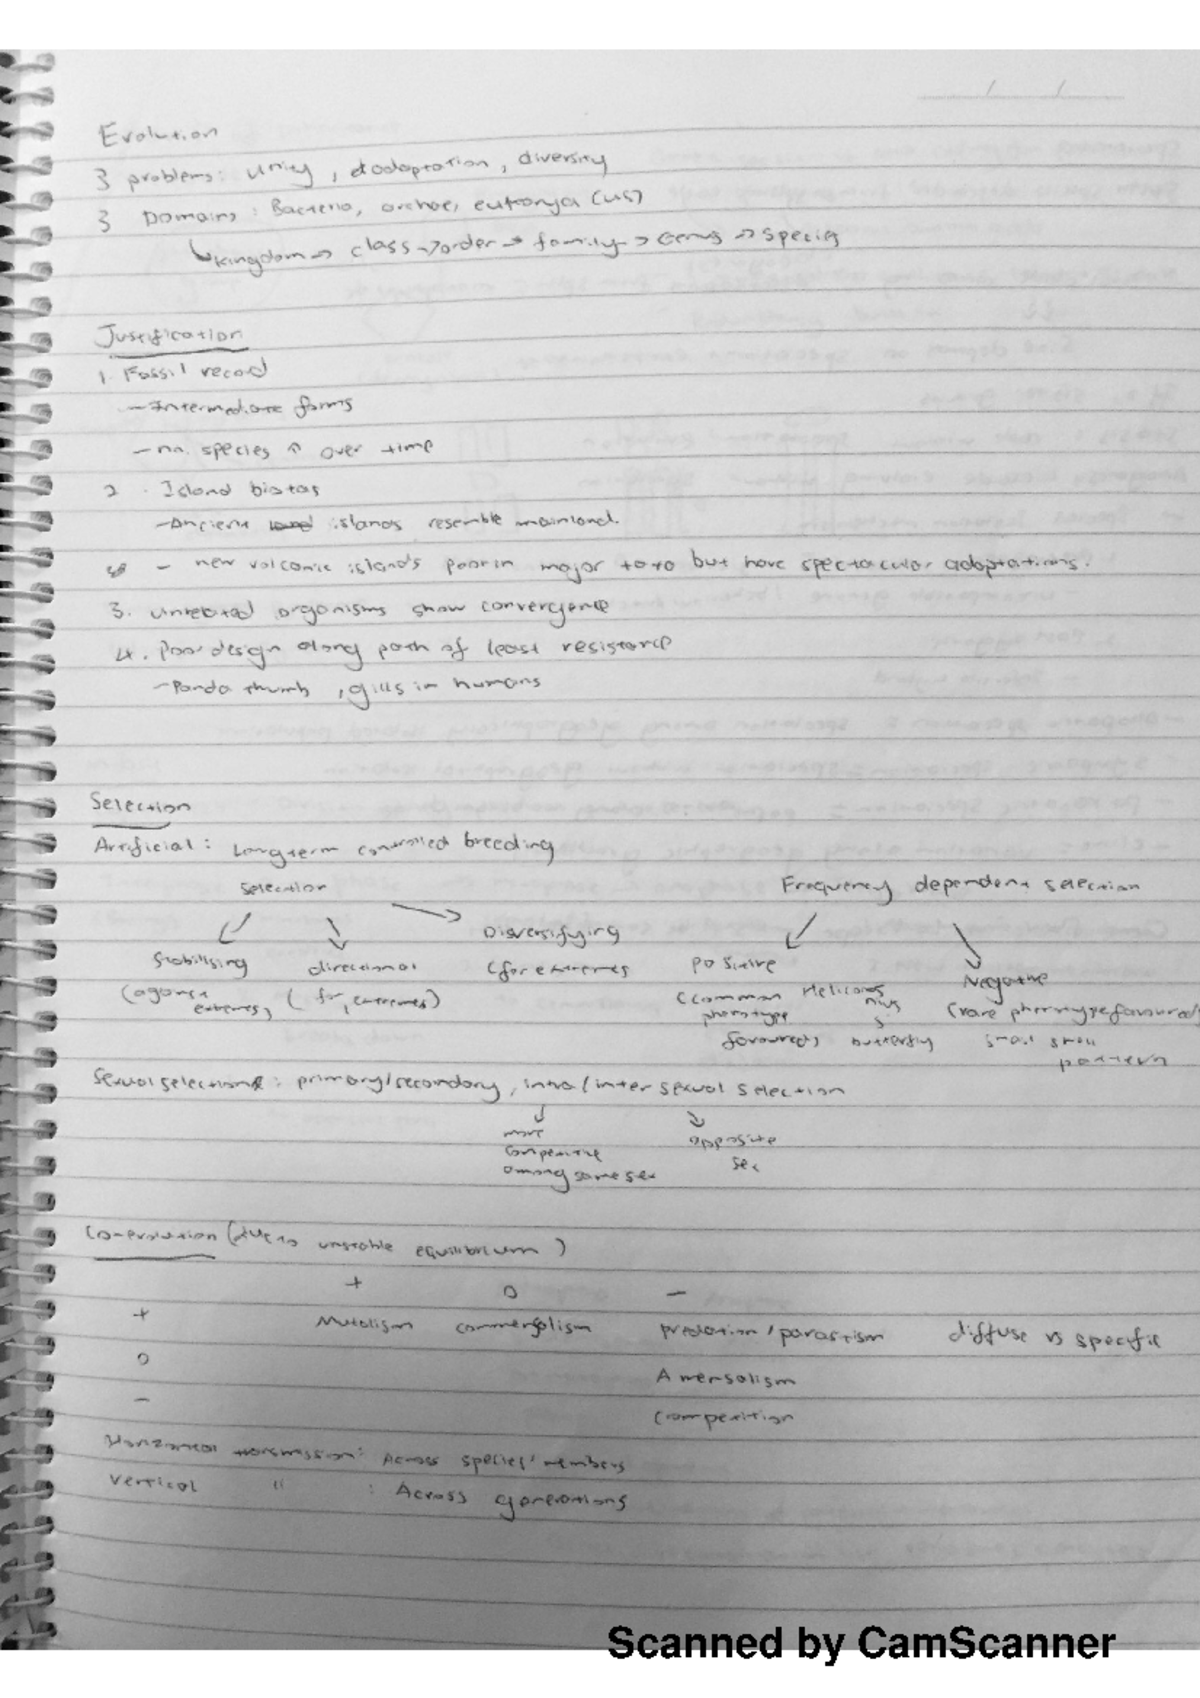 Evolution
3 problems: unity, adaptation, diversity
3 Domains: Bacteria, archae, eukarya (us)
↳ kingdom → class → order → family → Genus → species
Justification
1. Fossil record
- Intermediate forms
- no. species ↑ over time
2. Island biotas
- Ancient islands resemble mainland.
- new volcanic islands poor in major taxa but have spectacular adaptations.
3. unrelated organisms show convergence
4. Poor design along path of least resistance
- Panda thumb, gills in humans
Selection
Artificial: Longterm controlled breeding
selection
Frequency dependent selection
Diversifying
Stabilising directional (for extremes positive Negative
(against extremes) (for, extremes)
(common phenotype favoured) Heliconius butterfly
(rare phenotype favoured)
snail shell pattern
Sexual selection: primary/secondary, intra/inter sexual selection
more competitive among same sex
opposite sex
Co-evolution (due to unstable equilibrium)
+ 0 -
+ Mutalism commensalism predation/parasitism diffuse vs specific
0 Amensalism
- Competition
Horizontal transmission: Across species' members
Vertical " : Across generations
Scanned by CamScanner